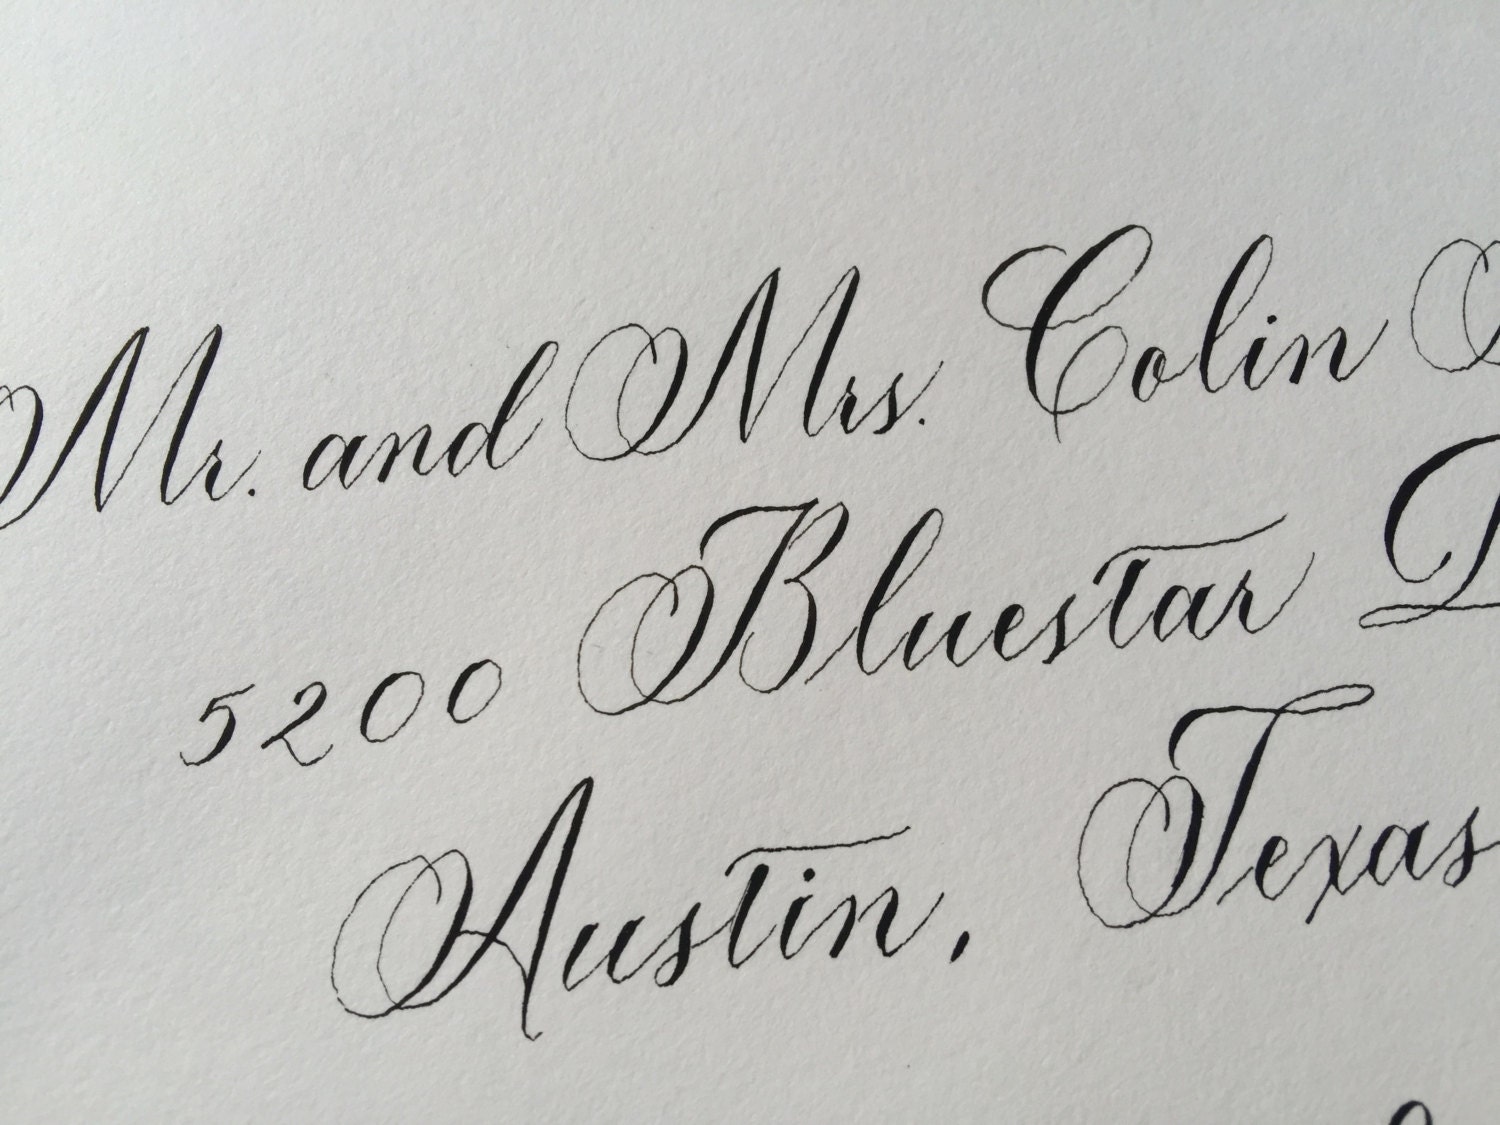 Mr. and Mrs. Colin
5200 Bluestar
Austin, Texas